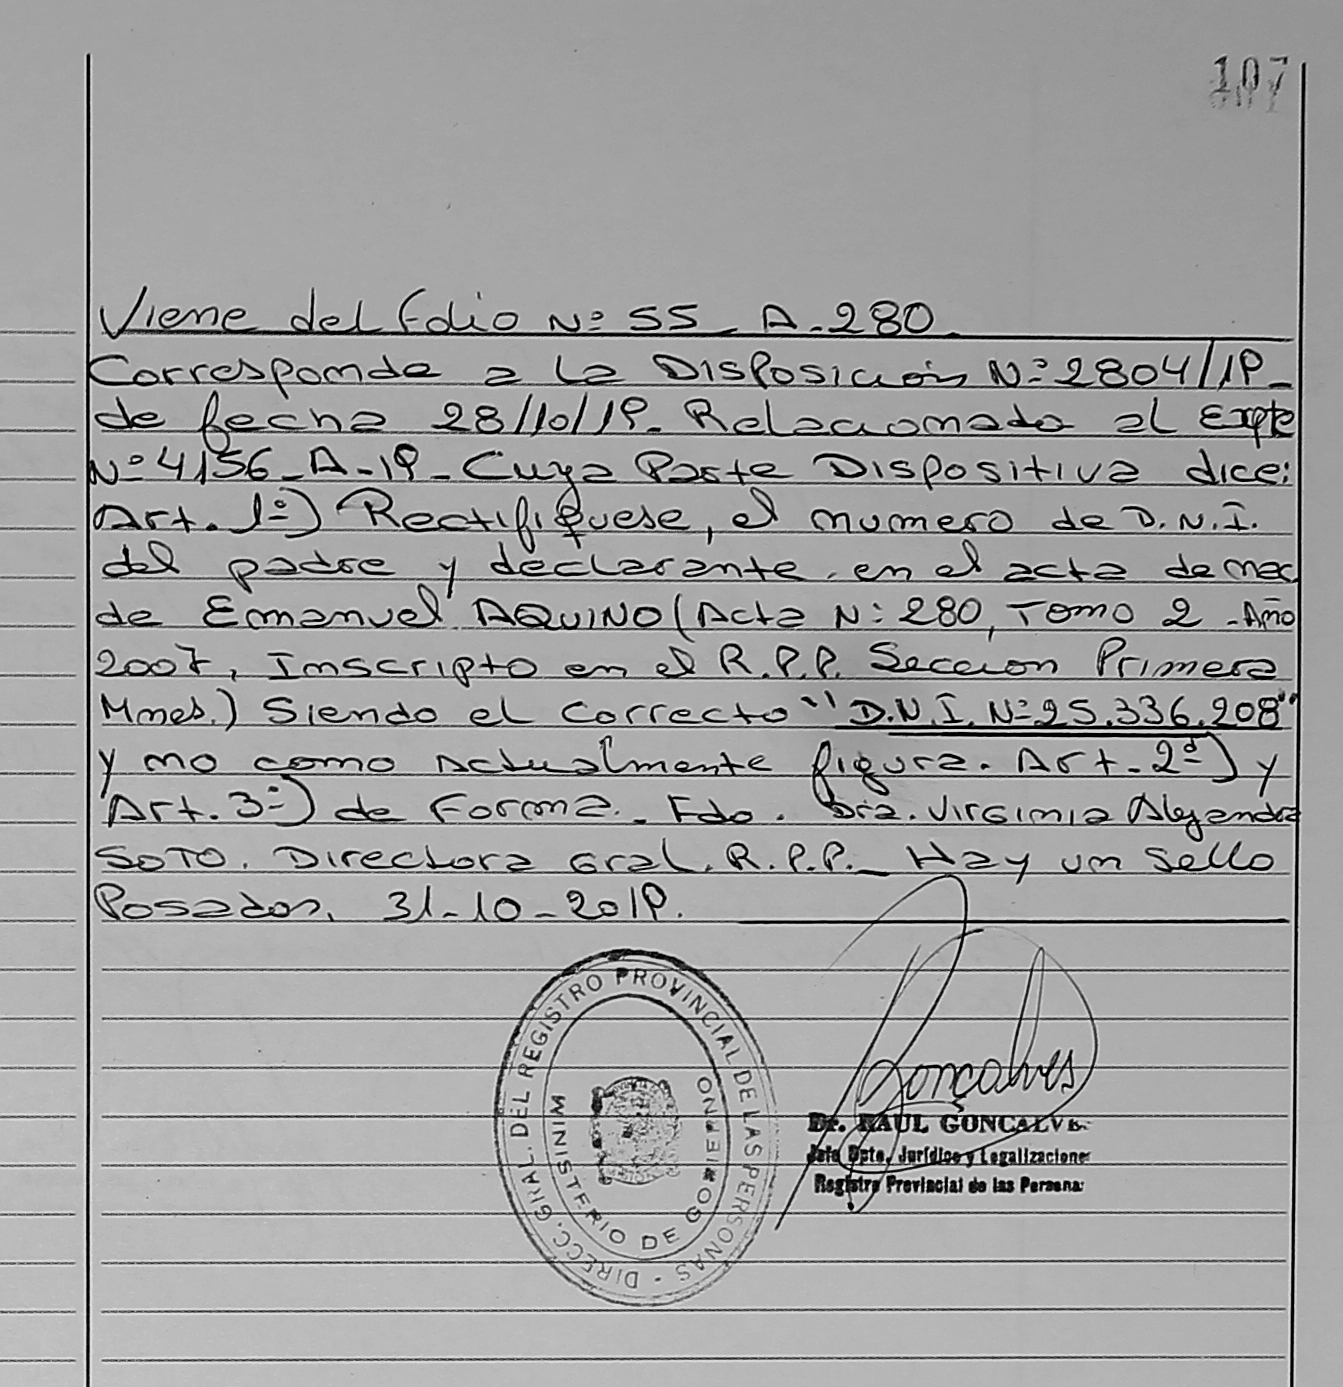 107
Viene del folio Nº 55 - A - 280.
Corresponde a la Disposición Nº 2804/19 -
de fecha 28/10/19 - Relacionado al Expte
Nº 4156 - A - 19 - Cuya Parte Dispositiva dice:
Art. 1º) Rectifíquese, el numero de D.N.I.
del padre y declarante, en el acta de nac
de Emanuel AQUINO (Acta N: 280, Tomo 2 - Año
2007, Inscripto en el R.P.P. Seccion Primera
Mnes.) Siendo el Correcto "D.N.I. Nº 25.336.208"
y no como actualmente figura. Art. 2º) y
Art. 3º) de Forma. - Fdo. Dra. Virginia Alejandra
SOTO. Directora Gral. R.P.P. - Hay un Sello
Posadas, 31 - 10 - 2019.
DIRECC. GRAL. DEL REGISTRO PROVINCIAL DE LAS PERSONAS -
MINISTERIO DE GOBIERNO
Goncalves
Dr. RAUL GONCALVES
Jefe Dpto. Jurídico y Legalizaciones
Registro Provincial de las Personas